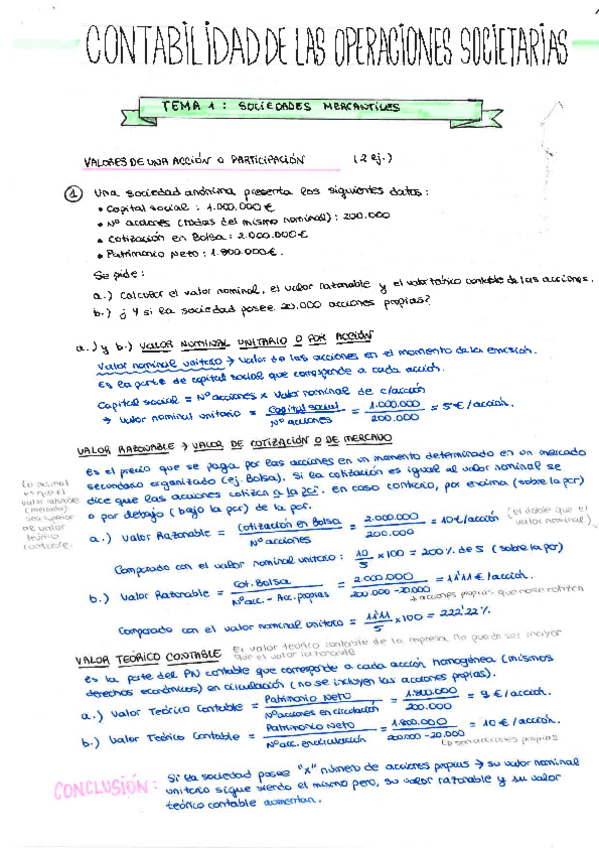 CONTABILIDAD DE LAS OPERACIONES SOCIETARIAS
TEMA 1: SOCIEDADES MERCANTILES
VALORES DE UNA ACCIÓN O PARTICIPACIÓN (2 ej.)
① Una sociedad anónima presenta los siguientes datos:
• Capital social: 1.000.000€
• Nº acciones (todas del mismo nominal): 200.000
• Cotización en Bolsa: 2.000.000€
• Patrimonio Neto: 1.800.000€.
Se pide:
a.) Calcular el valor nominal, el valor razonable y el valor teórico contable de las acciones.
b.) ¿Y si la sociedad posee 20.000 acciones propias?
a.) y b.) VALOR NOMINAL UNITARIO O POR ACCIÓN
Valor nominal unitario → Valor de las acciones en el momento de la emisión.
Es la parte de capital social que corresponde a cada acción.
Capital social = Nº acciones x Valor nominal de c/acción
→ Valor nominal unitario = Capital social / Nº acciones = 1.000.000 / 200.000 = 5€/acción.
VALOR RAZONABLE → VALOR DE COTIZACIÓN O DE MERCADO
Es el precio que se paga por las acciones en un momento determinado en un mercado
secundario organizado (ej. Bolsa). Si la cotización es igual al valor nominal se
dice que las acciones cotiza a la par. en caso contrario, por encima (sobre la par)
o por debajo (bajo la par) de la par.
Lo normal es que el valor razonable (mercado) sea superior al valor teórico contable.
a.) Valor Razonable = Cotización en Bolsa / Nº acciones = 2.000.000 / 200.000 = 10€/acción (el doble que el valor nominal)
Comparado con el valor nominal unitario: 10/5 x 100 = 200% de 5 (sobre la par)
b.) Valor Razonable = Cot. Bolsa / Nº acc. - Acc. propias = 2.000.000 / 200.000 - 20.000 = 11'11€/acción.
acciones propias que no se cotizan
Comparado con el valor nominal unitario = 11'11/5 x 100 = 222'22%.
VALOR TEÓRICO CONTABLE El valor teórico contable de la empresa no puede ser mayor
que el valor razonable
Es la parte del PN contable que corresponde a cada acción homogénea (mismos
derechos económicos) en circulación (no se incluyen las acciones propias).
a.) Valor Teórico Contable = Patrimonio Neto / Nº acciones en circulación = 1.800.000 / 200.000 = 9€/acción.
b.) Valor Teórico Contable = Patrimonio Neto / Nº acc. en circulación = 1.800.000 / 200.000 - 20.000 = 10€/acción.
son acciones propias
CONCLUSIÓN: Si la sociedad posee "x" número de acciones propias → su valor nominal
unitario sigue siendo el mismo pero, su valor razonable y su valor
teórico contable aumentan.